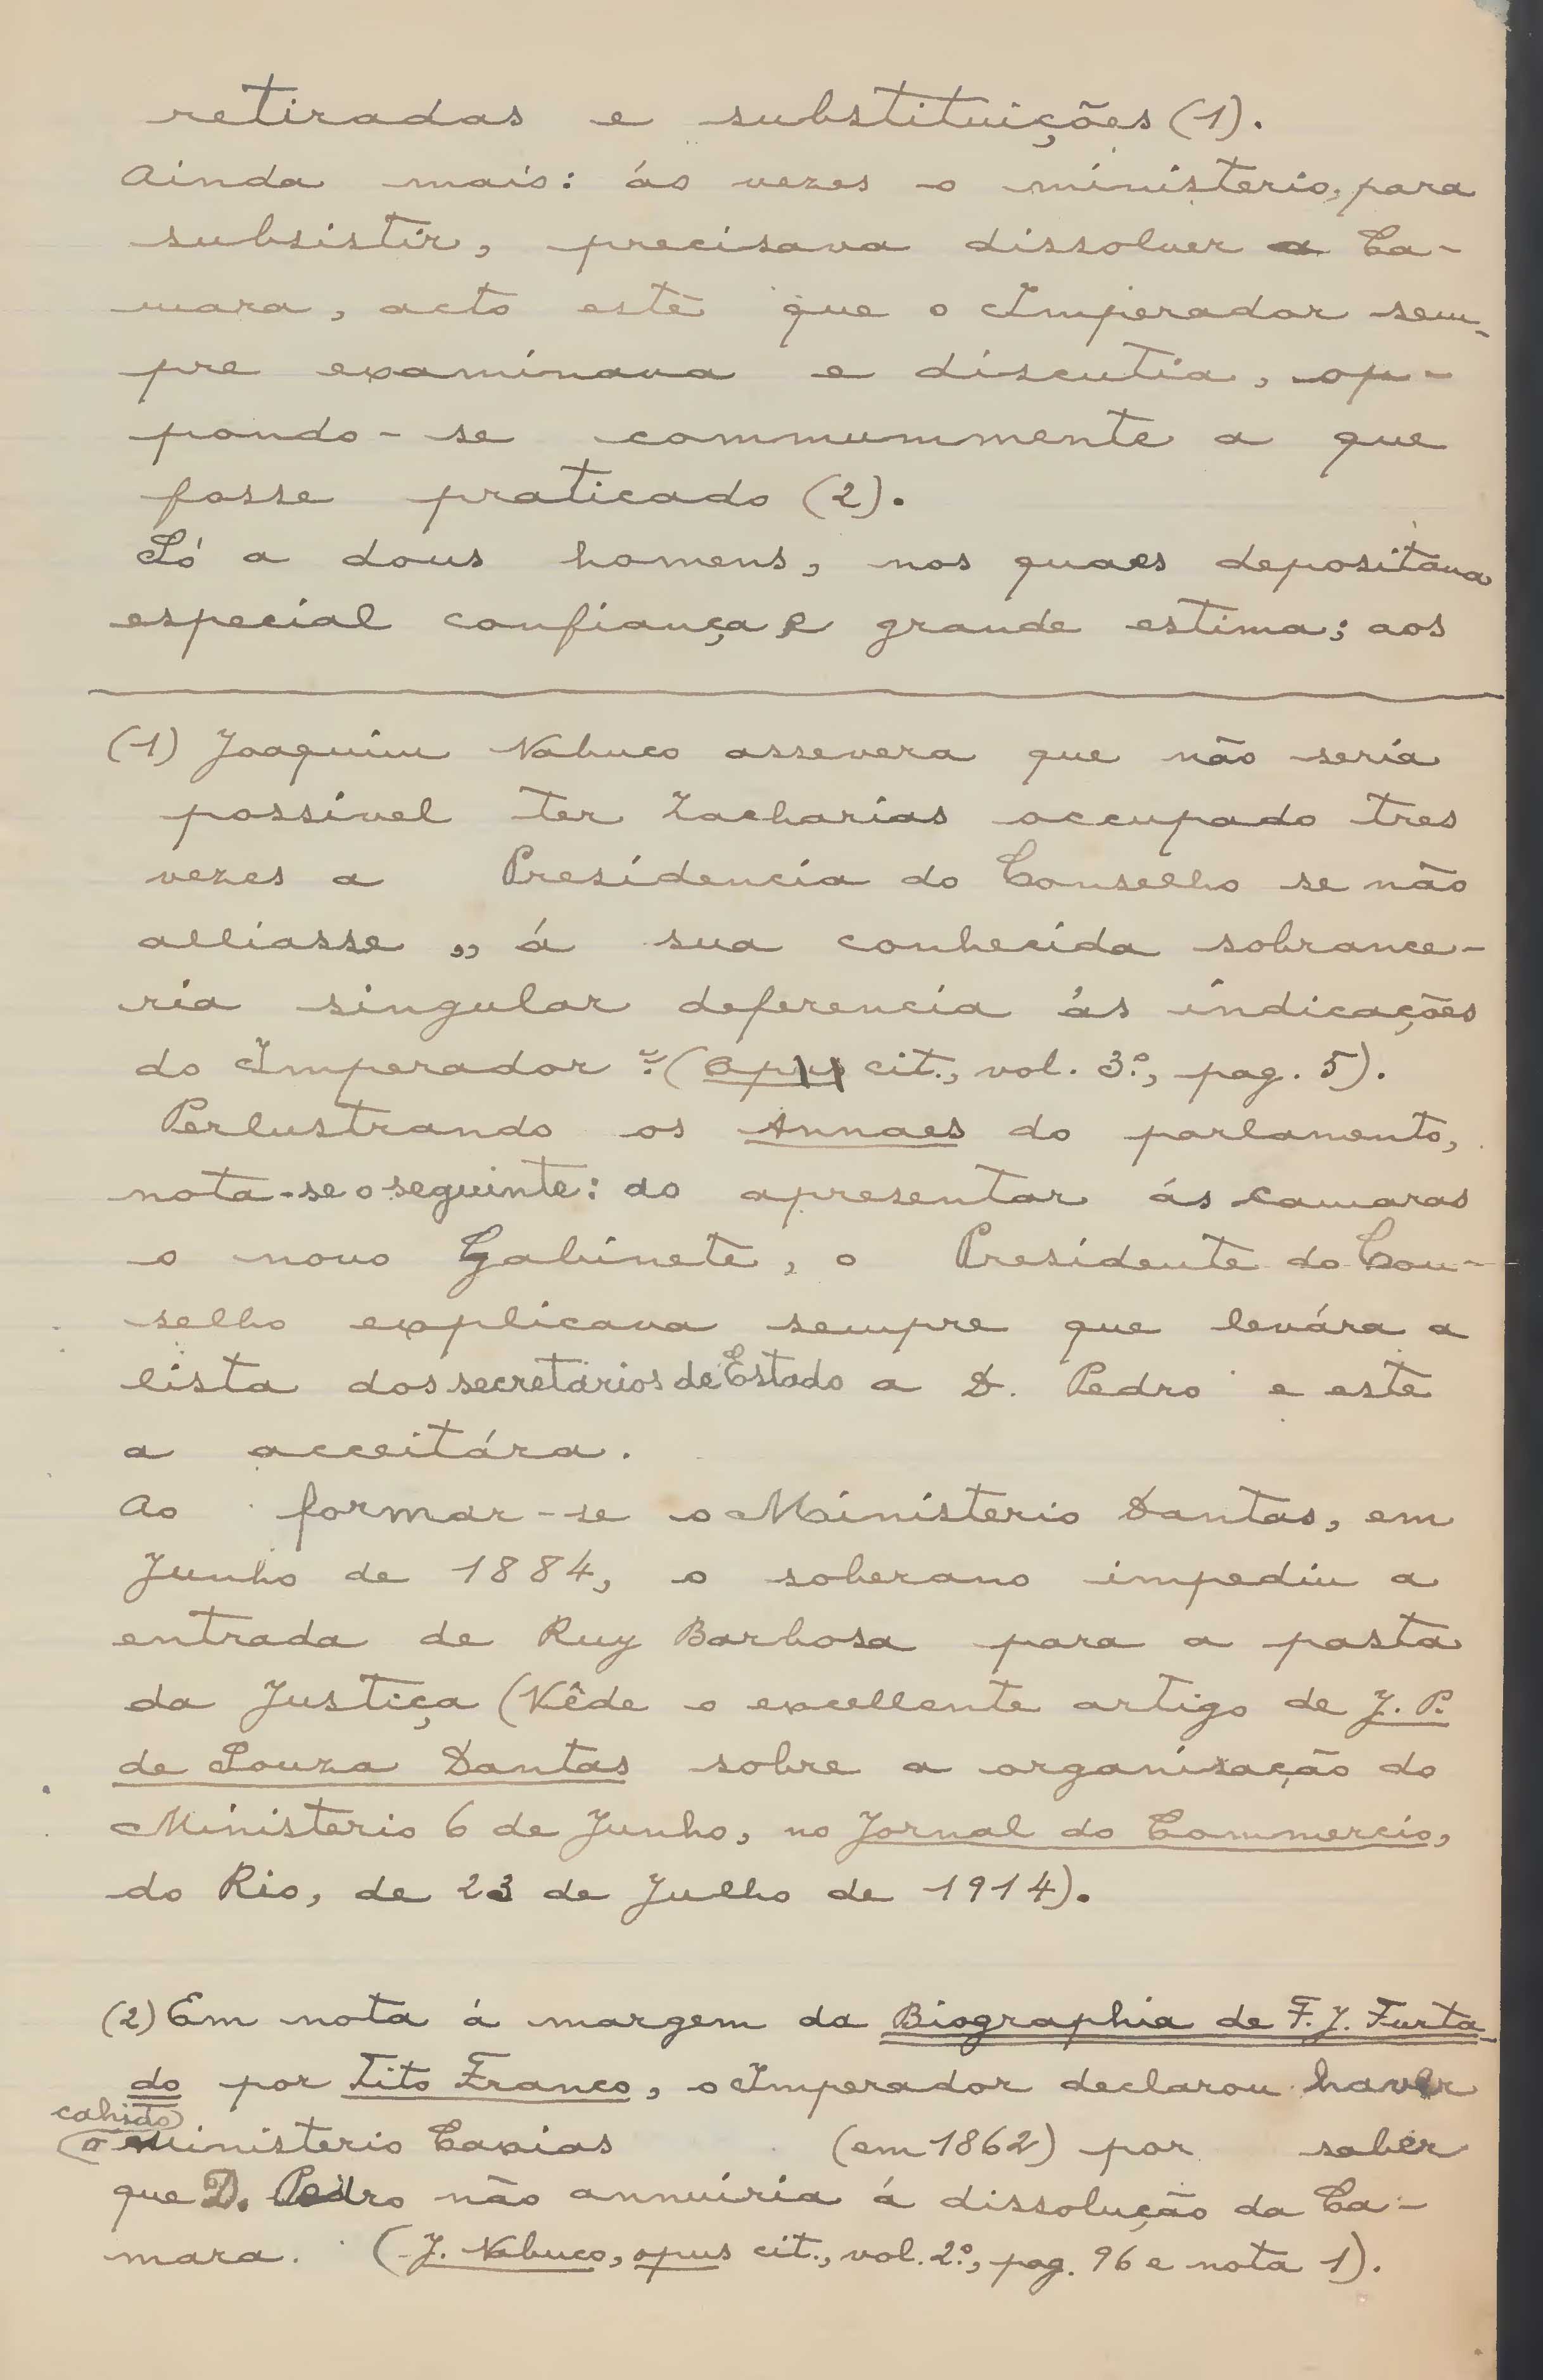 retiradas e substituições (1).
Ainda mais: ás vezes o ministerio, para
subsistir, precisava dissolver a Ca-
mara, acto este que o Imperador sem-
pre examinava e discutia, op-
pondo-se communmente a que
fosse praticado (2).
Só a dous homens, nos quaes depositava
especial confiança e grande estima; aos
(1) Joaquim Nabuco assevera que não seria
possivel ter Zacharias occupado tres
vezes a Presidencia do Conselho se não
alliasse „ á sua conhecida sobrance-
ria singular deferencia ás indicações
do Imperador ". (op. cit., vol. 3.º, pag. 5).
Perlustrando os Annaes do parlamento,
nota-se o seguinte: ao apresentar ás camaras
o novo Gabinete, o Presidente do Con-
selho explicava sempre que levára a
lista dos secretarios de Estado a D. Pedro e este
a acceitára.
Ao formar-se o Ministerio Dantas, em
Junho de 1884, o soberano impediu a
entrada de Ruy Barbosa para a pasta
da Justiça (Vêde o excellente artigo de J. P.
de Souza Dantas sobre a organisação do
Ministerio 6 de Junho, no Jornal do Commercio,
do Rio, de 23 de Julho de 1914).
(2) Em nota á margem da Biographia de F. J. Furta-
do por Tito Franco, o Imperador declarou haver
cahido
o Ministerio Caxias (em 1862) por saber
que D. Pedro não annuiria á dissolução da Ca-
mara. (J. Nabuco, opus cit., vol. 2.º, pag. 96 e nota 1).